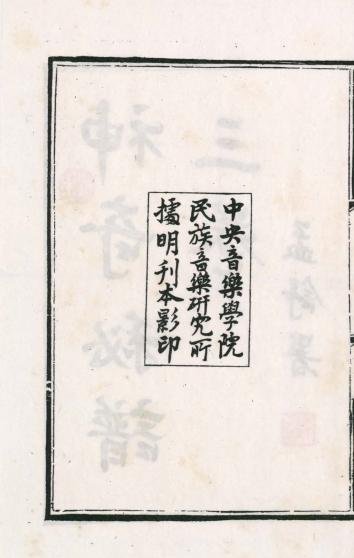 中央音樂學院
民族音樂研究所
據明刊本影印